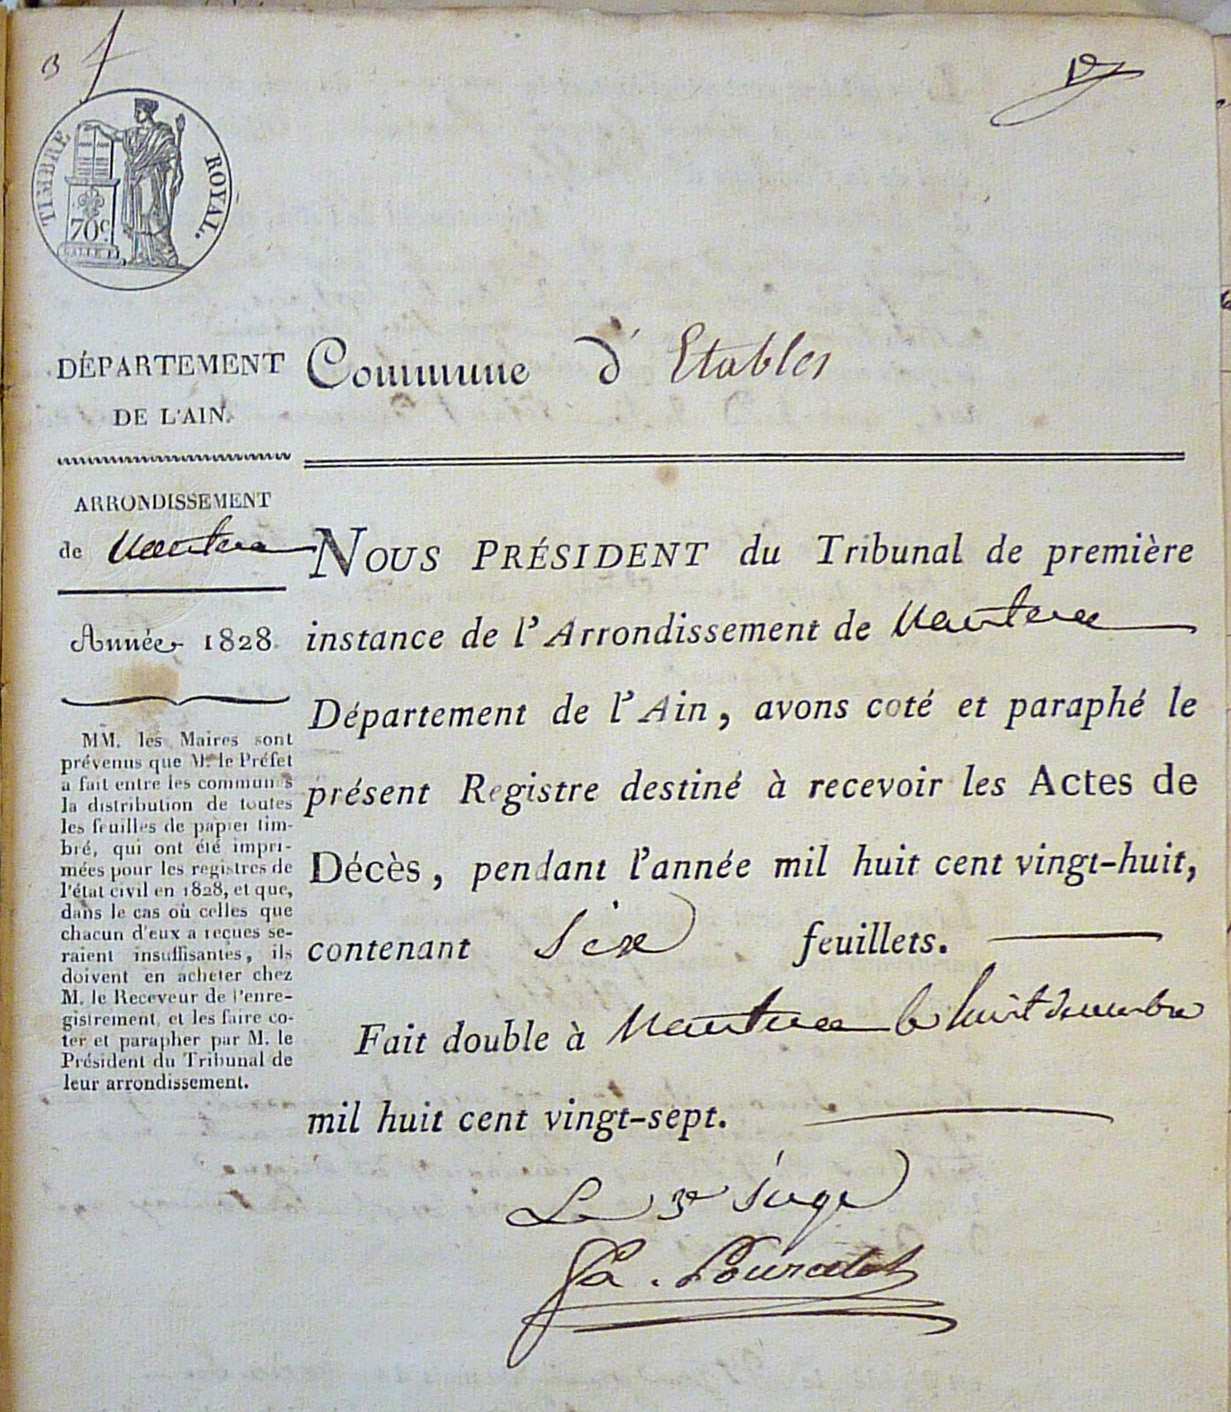 TIMBRE ROYAL.
70c.
DÉPARTEMENT
DE L'AIN.
ARRONDISSEMENT
de Nantua
Année 1828
MM. les Maires sont
prévenus que M. le Préfet
a fait entre les communes
la distribution de toutes
les feuilles de papier tim-
bré, qui ont été impri-
mées pour les registres de
l'état civil en 1828, et que,
dans le cas où celles que
chacun d'eux a reçues se-
raient insuffisantes, ils
doivent en acheter chez
M. le Receveur de l'enre-
gistrement, et les faire co-
ter et parapher par M. le
Président du Tribunal de
leur arrondissement.
Commune d'Etables
NOUS PRÉSIDENT du Tribunal de première
instance de l'Arrondissement de Nantua
Département de l'Ain, avons coté et paraphé le
présent Registre destiné à recevoir les Actes de
Décès, pendant l'année mil huit cent vingt-huit,
contenant Six feuillets.
Fait double à Nantua le huit décembre
mil huit cent vingt-sept.
Le 3e Juge